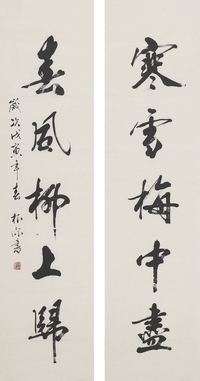 寒雪梅中盡
春風柳上歸
歲次戊寅年春